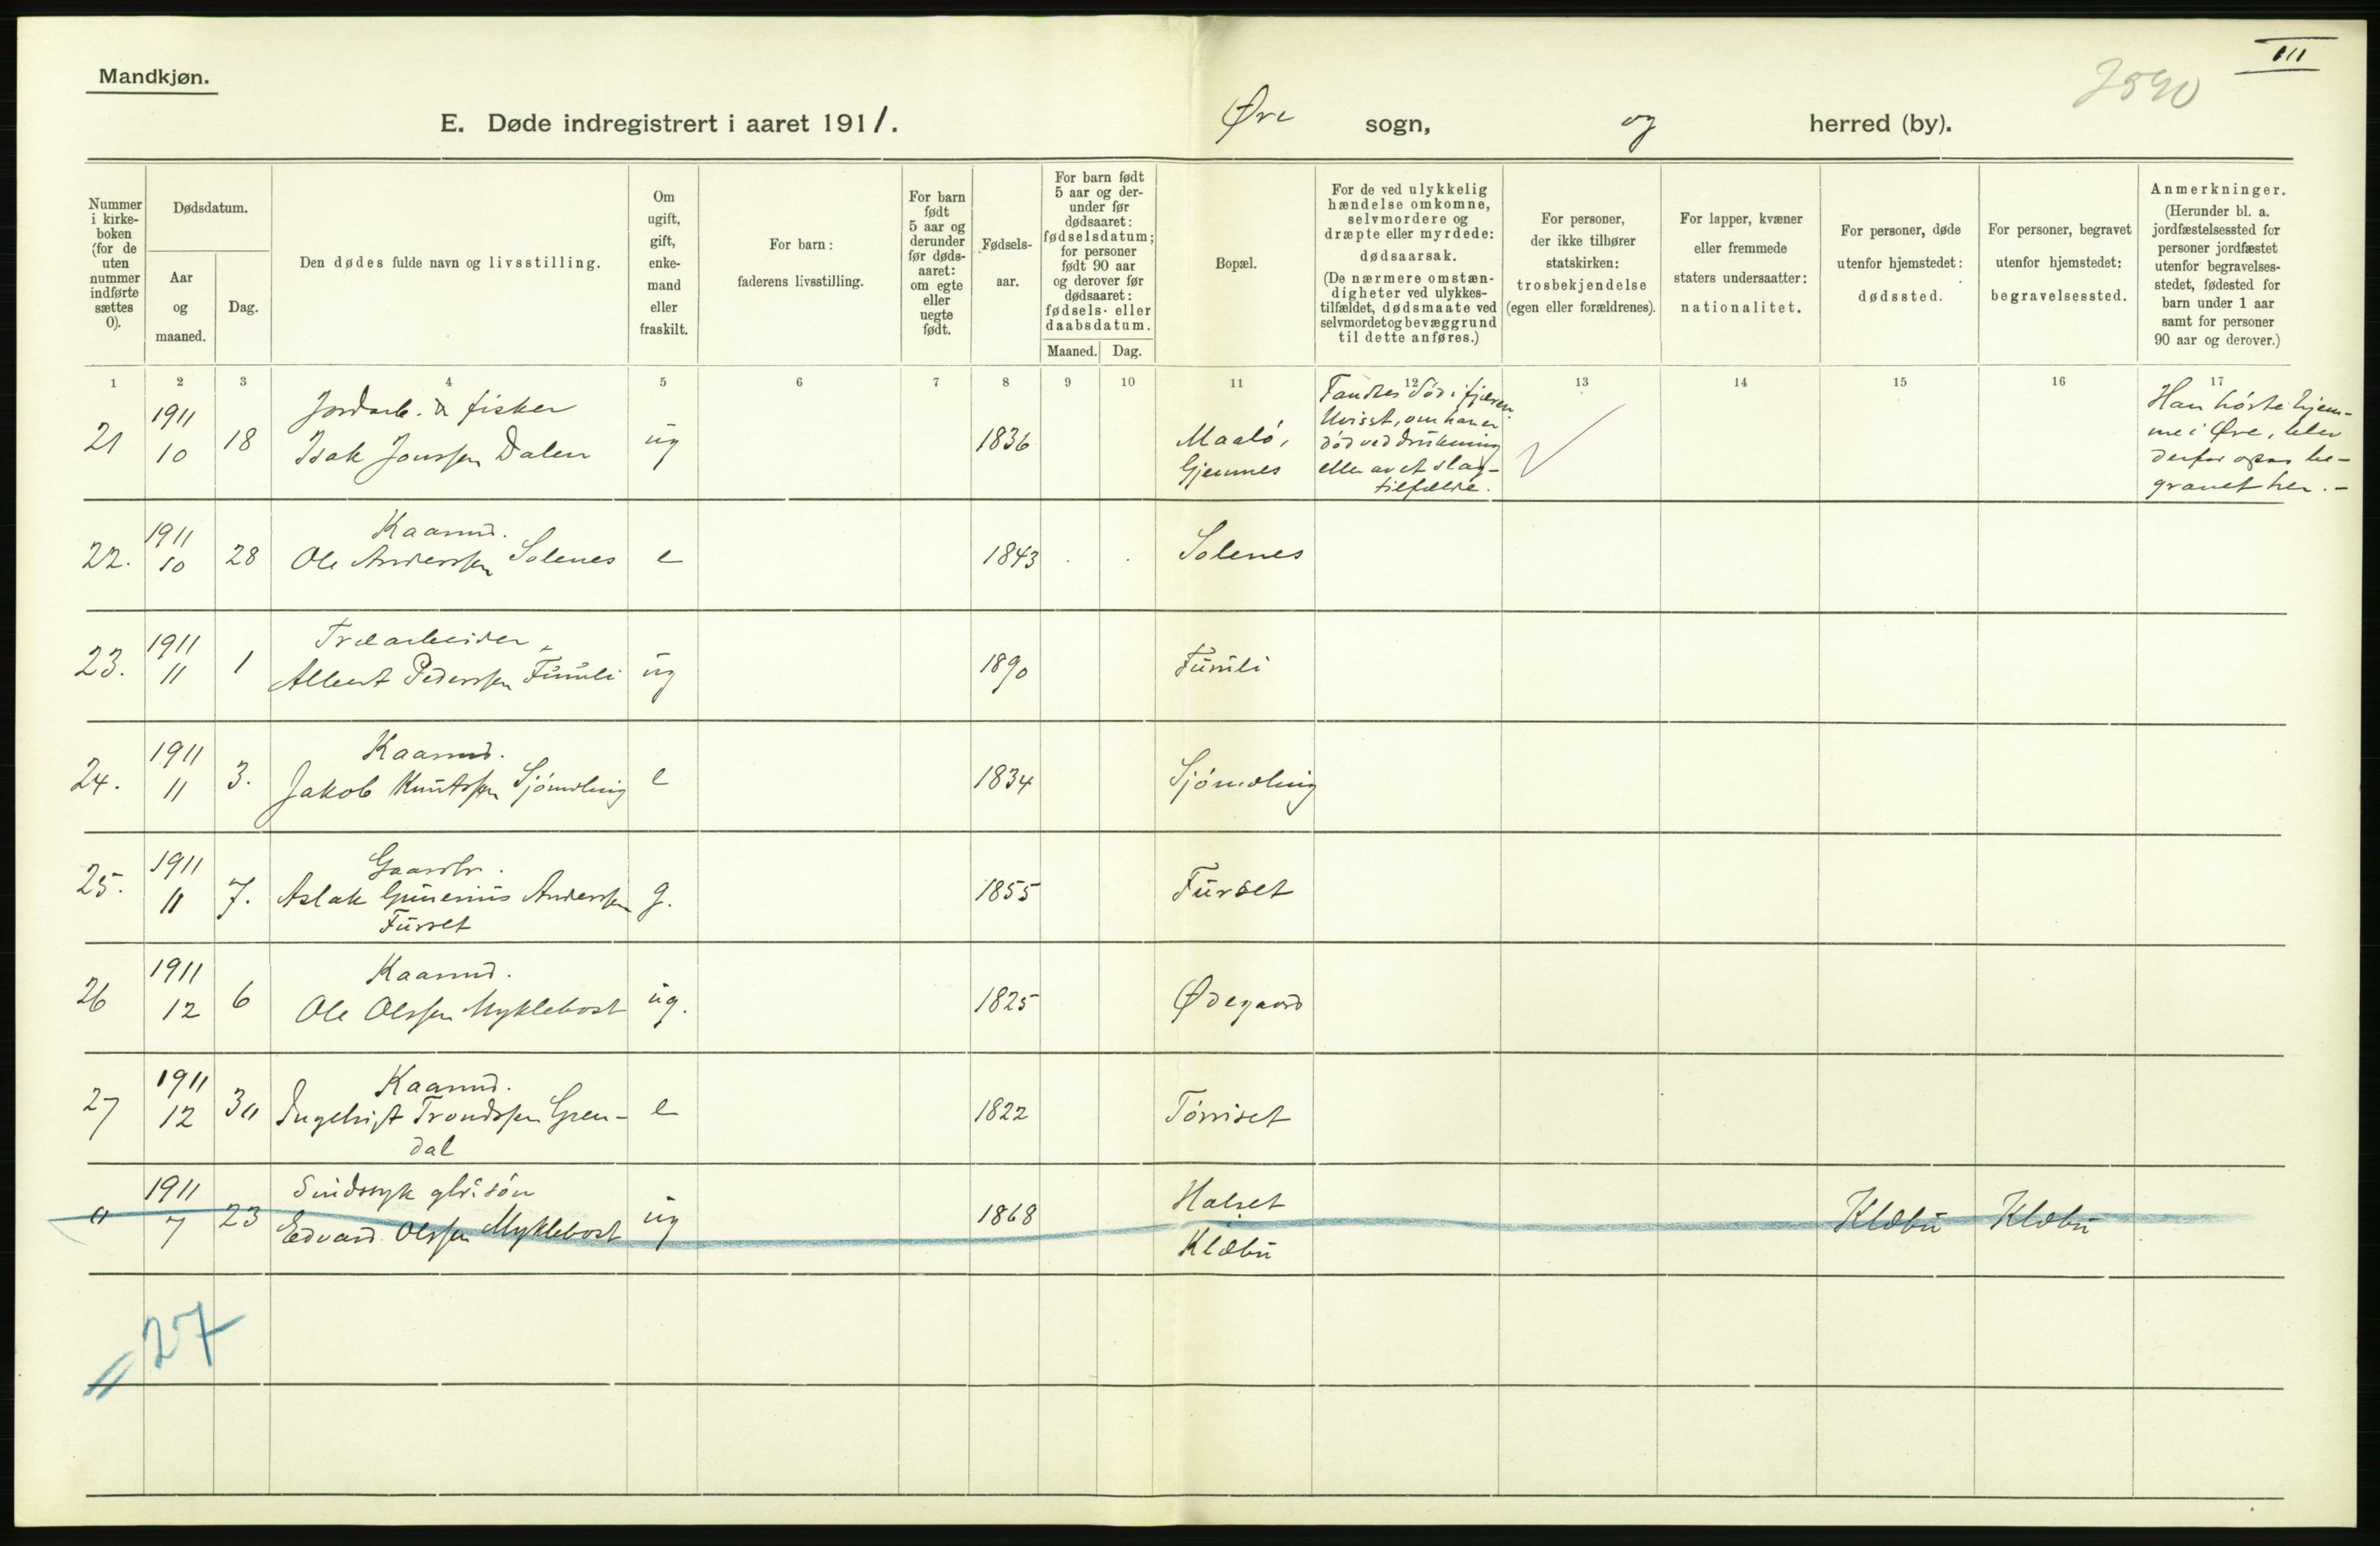 Mandkjøn.
III
7590
E. Døde indregistrert i aaret 1911. Øre sogn, og herred (by).
Nummer i kirke-boken (for de uten nummer indførte sættes 0).
Dødsdatum.
Aar og maaned.
Dag.
Den dødes fulde navn og livsstilling.
Om ugift, gift, enke-mand eller fraskilt.
For barn: faderens livsstilling.
For barn født 5 aar og derunder før døds-aaret: om egte eller uegte født.
Fødsels-aar.
For barn født 5 aar og der-under før dødsaaret: fødselsdatum; for personer født 90 aar og derover før dødsaaret: fødsels- eller daabsdatum.
Maaned. Dag.
Bopæl.
For de ved ulykkelig hændelse omkomne, selvmordere og dræpte eller myrdede: dødsaarsak.
(De nærmere omstæn-digheter ved ulykkes-tilfældet, dødsmaate ved selvmordet og bevæggrund til dette anføres.)
For personer, der ikke tilhører statskirken: trosbekjendelse (egen eller forældrenes).
For lapper, kvæner eller fremmede staters undersaatter: nationalitet.
For personer, døde utenfor hjemstedet: dødssted.
For personer, begravet utenfor hjemstedet: begravelsessted.
Anmerkninger.
(Herunder bl. a. jordfæstelsessted for personer jordfæstet utenfor begravelses-stedet, fødested for barn under 1 aar samt for personer 90 aar og derover.)
1 2 3 4 5 6 7 8 9 10 11 12 13 14 15 16 17
21 1911 10 18 Jordarb. & fisker
Isak Jonssen Dalen ug 1836 Maalö, Gjemnes
Fandtes död i fjæren.
Uvisst, om han er
död ved drukning
eller av et slag-
tilfælde.
Han hörte hjem-
me i Øre, blev
derfor be-
gravet her.-
22. 1911 10 28 Kaarmd.
Ole Anderssen Solenes e 1843 Solenes
23. 1911 11 1 Træarbeider
Albert Pederssen Furuli ug 1890 Furuli
24. 1911 11 3. Kaarmd.
Jakob Knutssen Sjömæling e 1834 Sjömæling
25. 1911 11 7. Gaardbr.
Aslak Gunerius Anderssen g. 1855 Furset
Furset
26 1911 12 6 Kaarmd.
Ole Olssen Myklebost ug. 1825 Ødegaard
27 1911 12 30 Kaarmd.
Ingebrigt Trondssen Gren- e 1822 Törriset
dal
0 1911 7 23 Sindssyk gbr. sön
Edvard Olssen Myklebost ug 1868 Halset
Klæbu Klæbu Klæbu
27